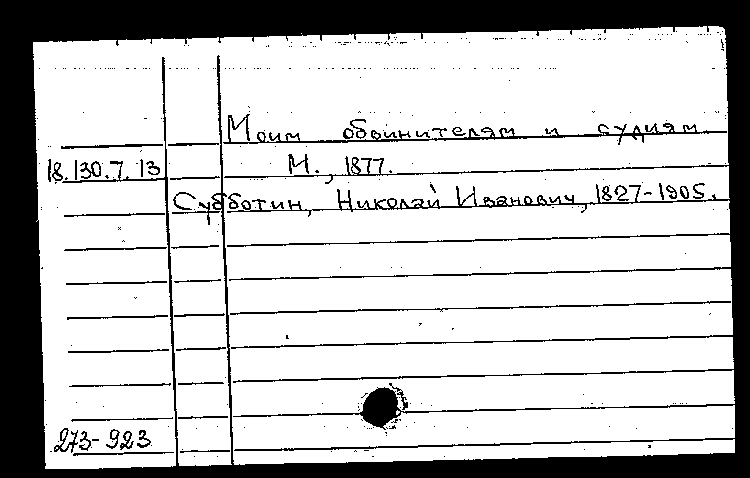 Моим обвинителям и судиям.
18.130.7.13 М., 1877.
Субботин, Николай Иванович, 1827-1905.
273-923